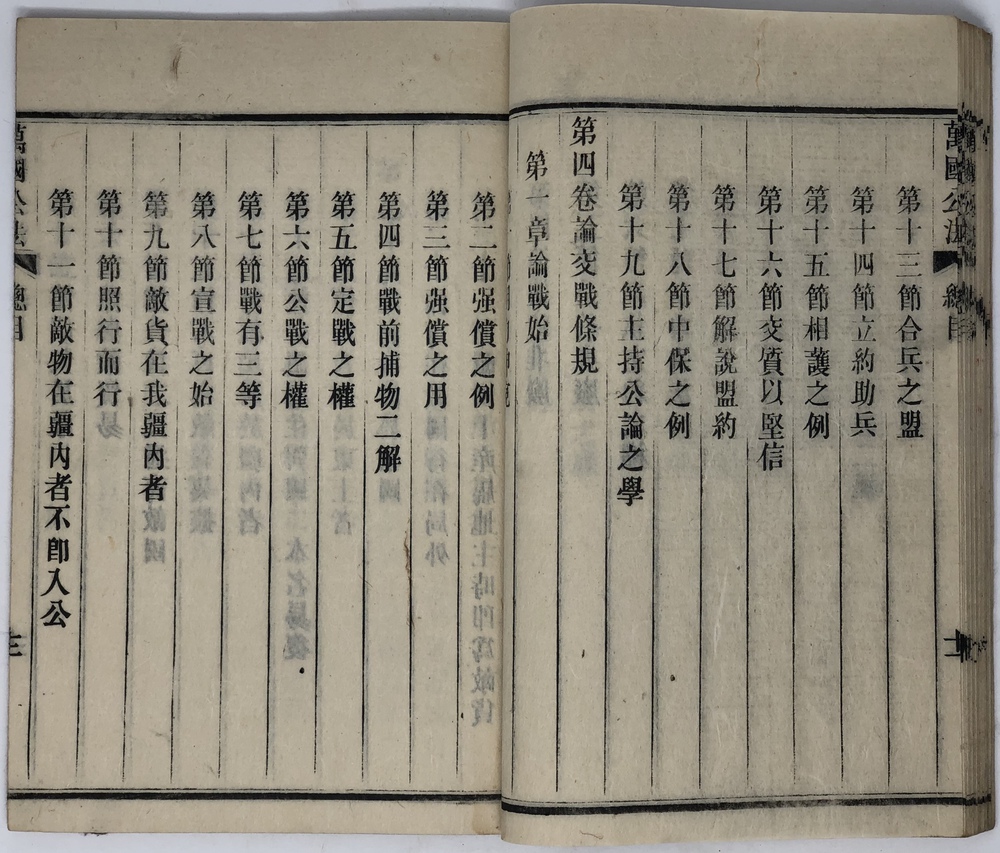 萬國公法 總目
第十三節合兵之盟
第十四節立約助兵
第十五節相護之例
第十六節交質以堅信
第十七節解說盟約
第十八節中保之例
第十九節主持公論之學
第四卷論交戰條規
第一章論戰始
第二節强償之例
第三節强償之用
第四節戰前捕物二解
第五節定戰之權
第六節公戰之權
第七節戰有三等
第八節宣戰之始
第九節敵貨在我疆內者
第十節照行而行
第十一節敵物在疆內者不卽入公
萬國公法 總目